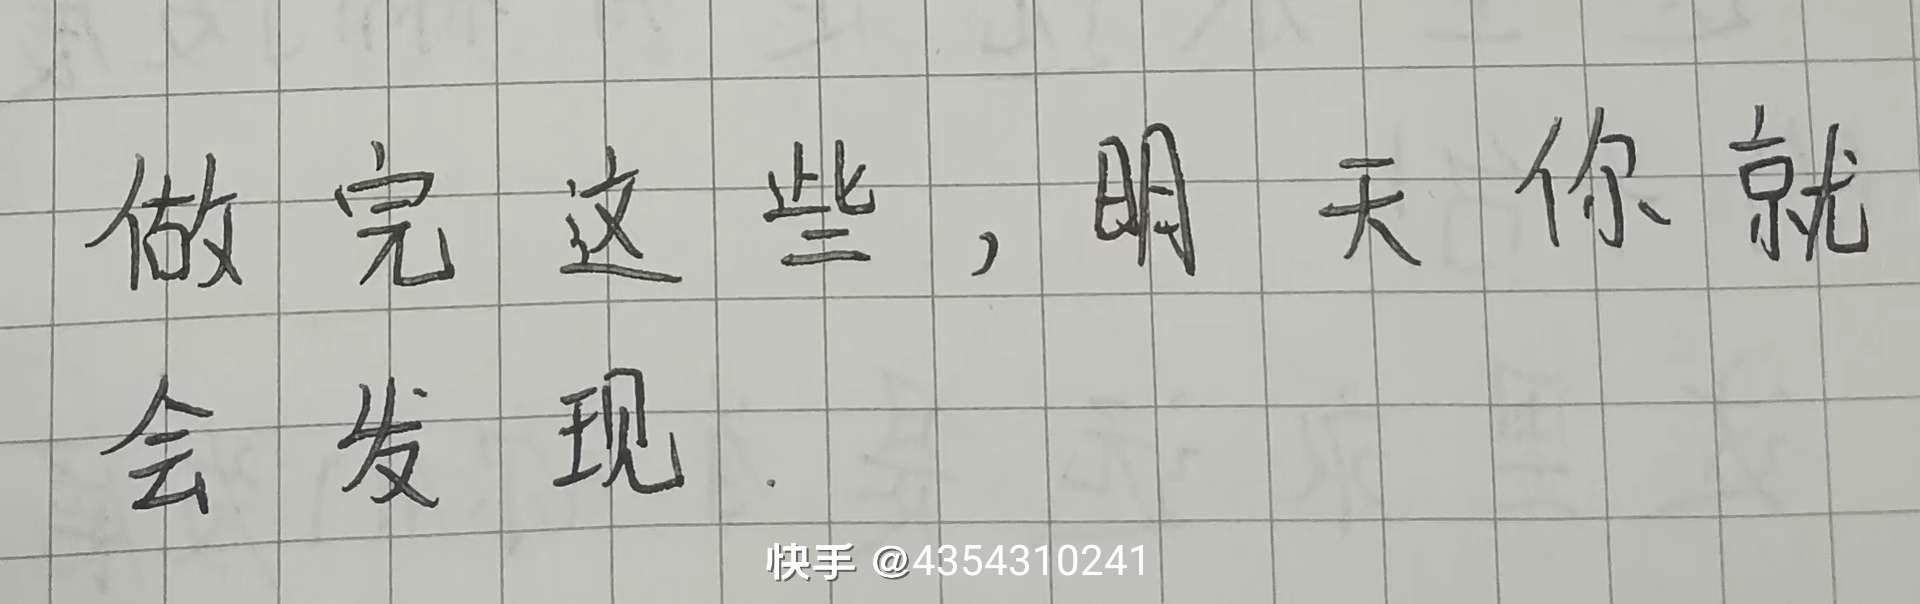 做完这些，明天你就
会发现.
快手 @4354310241